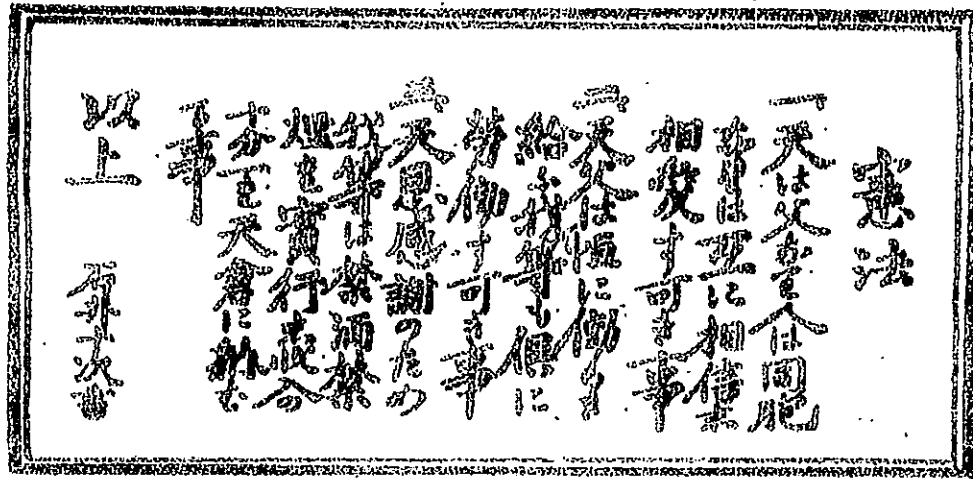 憲法
一天は父なり人は同胞
なれば互に相信じ
相愛す可き事
二天父は恒に働き
給ふ我等も倶に
労働す可き事
三天恩感謝のため
我等は禁酒禁
煙を實行し收入の
十分一を天倉に納む
可事
以上